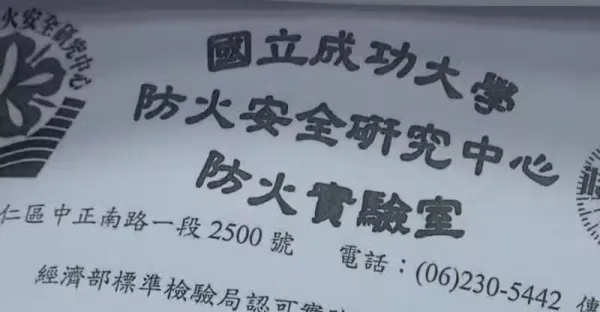 火安全研究中心
國立成功大學
防火安全研究中心
防火實驗室
仁區中正南路一段 2500 號 電話：(06)230-5442 傳
經濟部標準檢驗局認可實